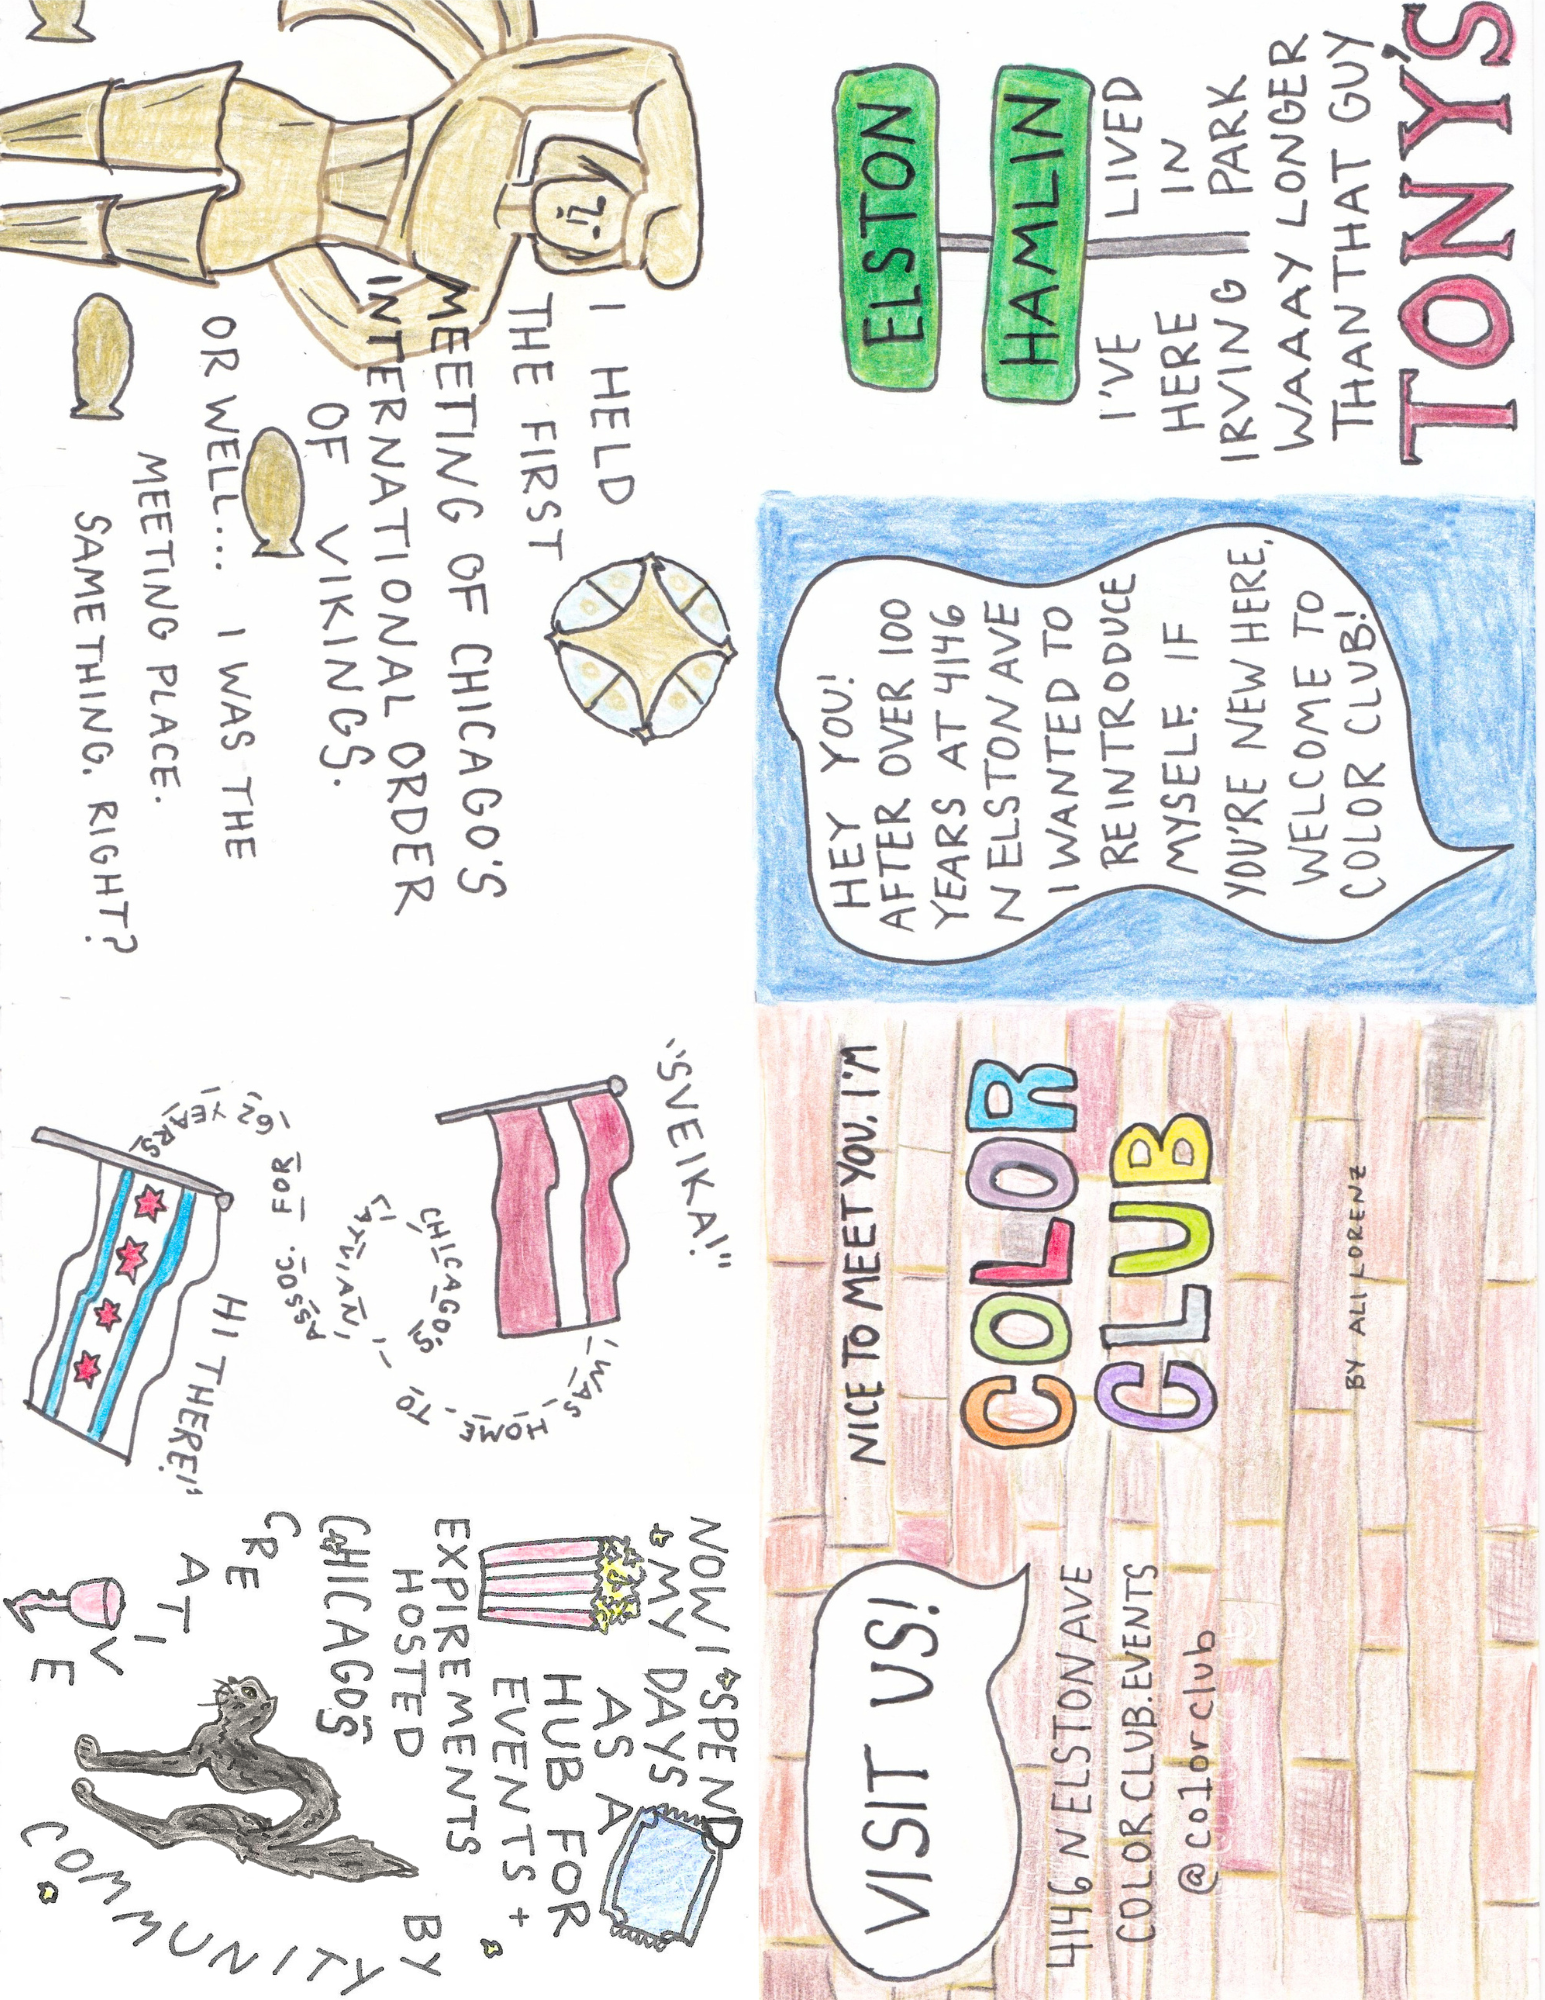 NICE TO MEET YOU. I'M
COLOR
CLUB
BY ALI LORENZ
HEY YOU!
AFTER OVER 100
YEARS AT 4146
N ELSTON AVE
I WANTED TO
REINTRODUCE
MYSELF. IF
YOU'RE NEW HERE,
WELCOME TO
COLOR CLUB!
ELSTON
HAMLIN
I'VE LIVED
HERE IN
IRVING PARK
WAAAY LONGER
THAN THAT GUY
TONY'S
I HELD
THE FIRST
MEETING OF CHICAGO'S
INTERNATIONAL ORDER
OF VIKINGS.
OR WELL.... I WAS THE
MEETING PLACE.
SAME THING. RIGHT?
"SVEIKA!"
I WAS HOME TO
CHICAGO'S
LATVIAN
ASSOC. FOR
62 YEARS
HI THERE!"
NOW I SPEND
MY DAYS
AS A
HUB FOR
EVENTS +
EXPIREMENTS
HOSTED BY
CHICAGO'S
CREATIVE
COMMUNITY
VISIT US!
4146 N ELSTON AVE
COLORCLUB.EVENTS
@colorclub